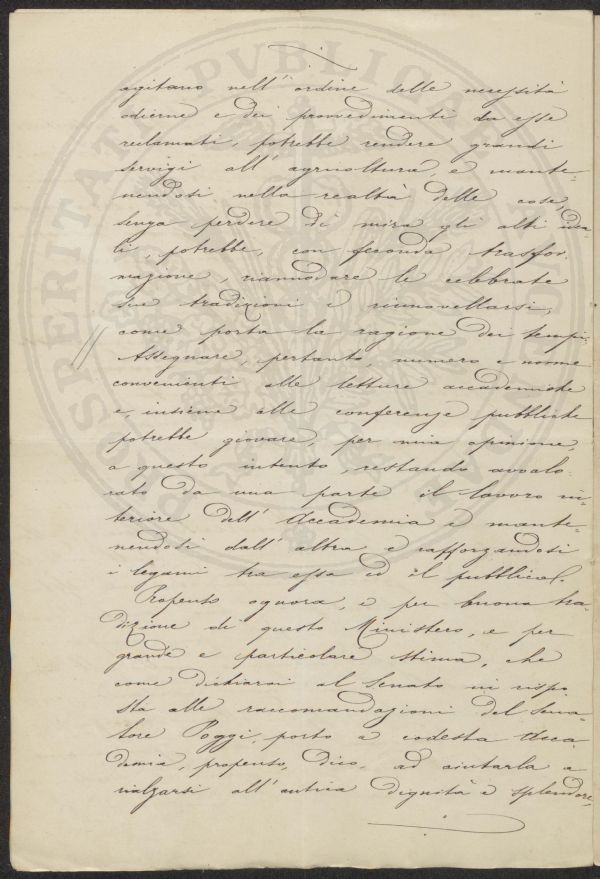 agitano nell'ordine delle necessità
odierne e dei provvedimenti da esse
reclamati, potrebbe rendere grandi
servigi all'agricoltura, e mante-
nendosi nella realtà delle cose,
senza perdere di mira gli alti idea-
li, potrebbe, con feconda trasfor-
mazione, riannodare le celebrate
sue tradizioni e rinnovellarsi,
come porta la ragione dei tempi.
Assegnare, pertanto, numero e norme
convenienti alle letture accademiche
e, insieme alle conferenze pubbliche
potrebbe giovare, per mia opinione,
a questo intento, restando avvalo-
rato da una parte il lavoro in-
teriore dell'Accademia e mante-
nendosi dall'altra e rafforzandosi
i legami tra essa ed il pubblico.
Propenso ognora, e per buona tra-
dizione di questo Ministero, e per
grande e particolare stima, che
come dichiarai al Senato in rispo-
sta alle raccomandazioni del Sena-
tore Poggi, porto a codesta Acca-
demia, propenso, dico, ad aiutarla a
rialzarsi all'antica dignità e splendore,